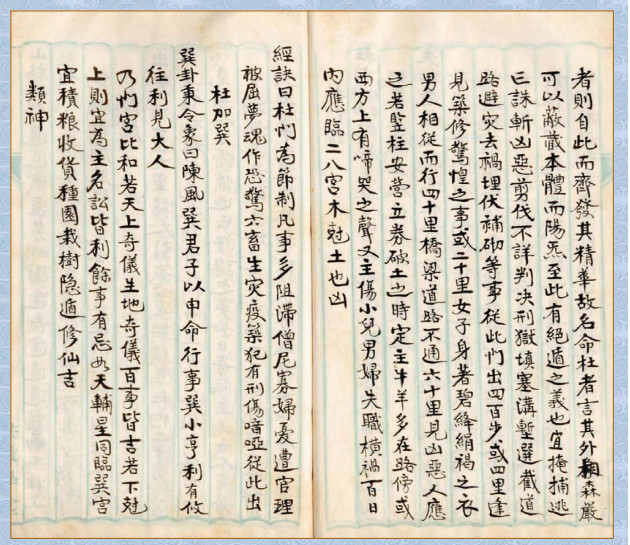 者則自此而齊發其精華故名命杜者言其外貌森嚴
可以蔽藏本體而陽炁至此有絕遁之義也宜掩捕逃
亡誅斬凶惡剪伐不詳判决刑獄填塞溝塹選截道
路避灾去禍埋伏補砌等事從此門出四百步或四里逢
見築修驚惶之事或二十里女子身著碧絳絹褐之衣
男人相從而行四十里橋梁道路不通六十里見凶惡人應
之若監柱安營立券破土之時定主牛羊多在路傍或
西方上有啼哭之聲又主傷小兒男婦失職橫禍百日
內應臨二八宮木尅土也凶
經訣曰杜門為節制凡事多阻滯僧尼寡婦憂遭官理
被屈夢魂作恐驚六畜生灾疫築犯有刑傷喑啞從此出
杜加巽
巽卦乗令象曰陳風巽君子以申命行事巽小亨利有攸
往利見大人
乃門宮比和若天上奇儀生地奇儀百事皆吉若下尅
上則宜為主名訟皆利餘事有忌如天輔星同臨巽宮
宜積粮收貨種園栽樹隐遁修仙吉
類神